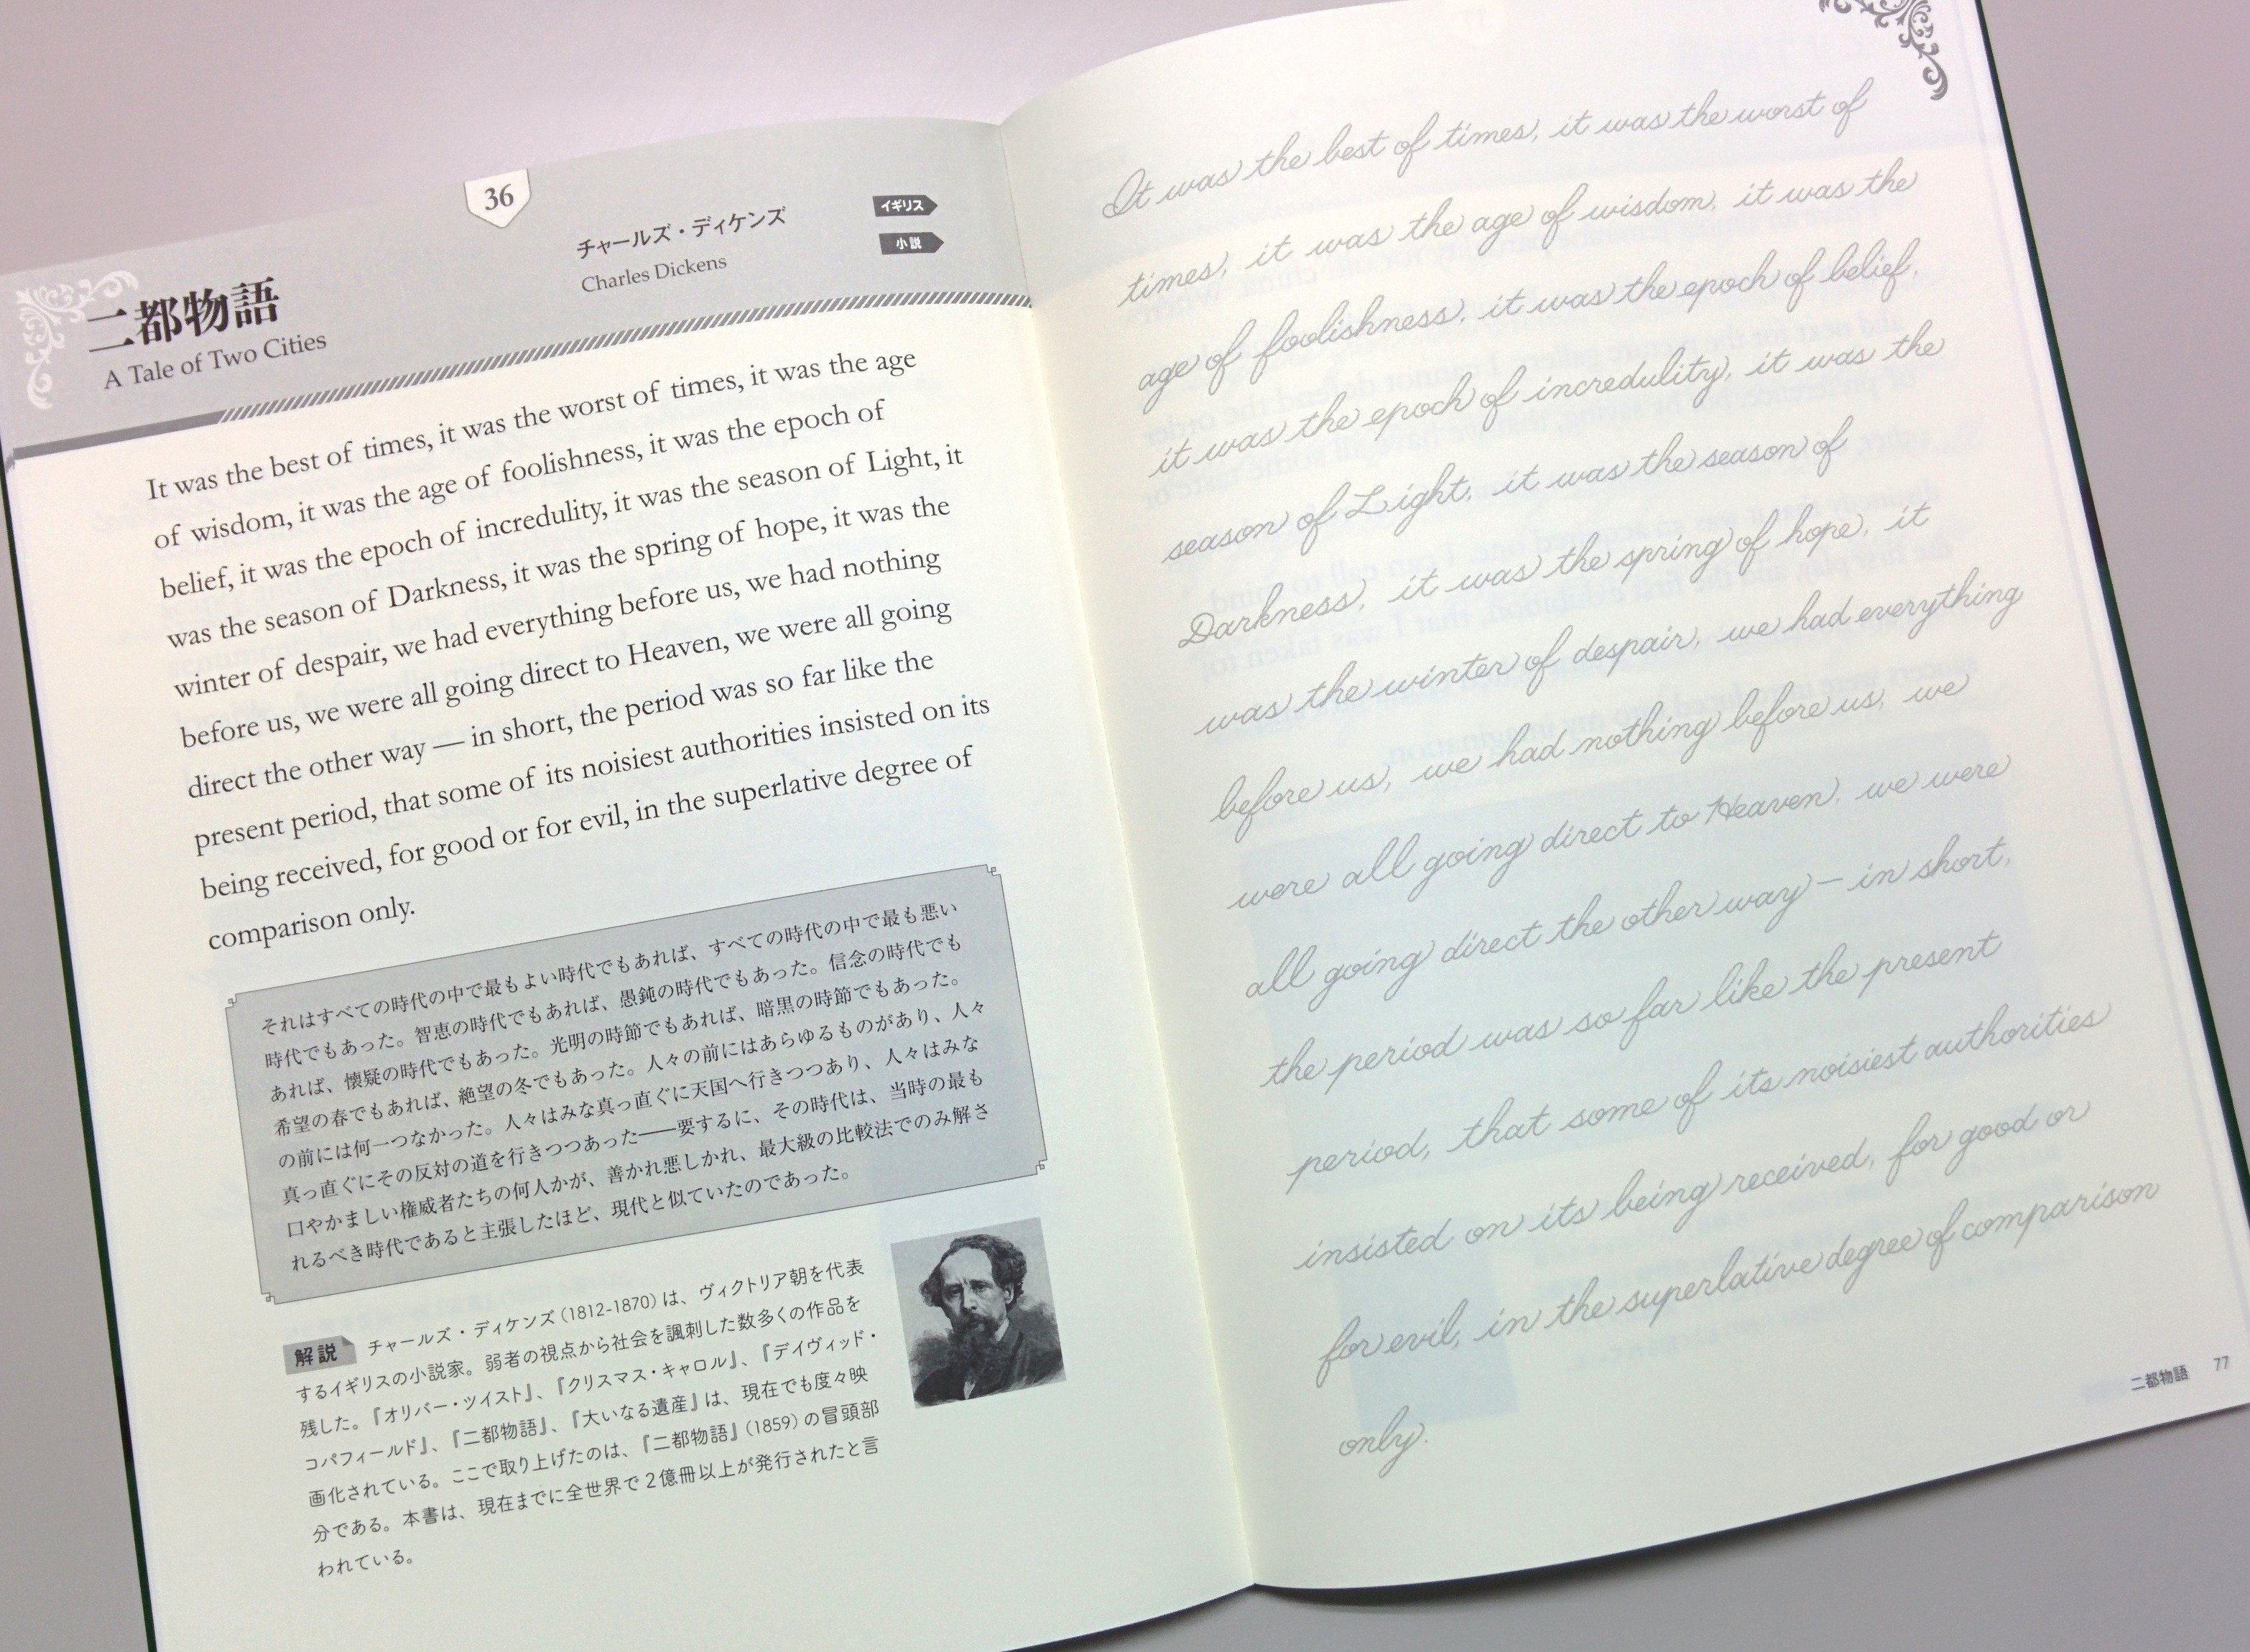 36
二都物語
A Tale of Two Cities
チャールズ・ディケンズ
Charles Dickens
イギリス
小説
It was the best of times, it was the worst of times, it was the age
of wisdom, it was the age of foolishness, it was the epoch of
belief, it was the epoch of incredulity, it was the season of Light, it
was the season of Darkness, it was the spring of hope, it was the
winter of despair, we had everything before us, we had nothing
before us, we were all going direct to Heaven, we were all going
direct the other way — in short, the period was so far like the
present period, that some of its noisiest authorities insisted on its
being received, for good or for evil, in the superlative degree of
comparison only.
それはすべての時代の中で最もよい時代でもあれば、すべての時代の中で最も悪い
時代でもあった。智恵の時代でもあれば、愚鈍の時代でもあった。信念の時代でも
あれば、懐疑の時代でもあった。光明の時節でもあれば、暗黒の時節でもあった。
希望の春でもあれば、絶望の冬でもあった。人々の前にはあらゆるものがあり、人々
の前には何一つなかった。人々はみな真っ直ぐに天国へ行きつつあり、人々はみな
真っ直ぐにその反対の道を行きつつあった──要するに、その時代は、当時の最も
口やかましい権威者たちの何人かが、善かれ悪しかれ、最大級の比較法でのみ解さ
れるべき時代であると主張したほど、現代と似ていたのであった。
解説 チャールズ・ディケンズ(1812-1870)は、ヴィクトリア朝を代表
するイギリスの小説家。弱者の視点から社会を諷刺した数多くの作品を
残した。『オリバー・ツイスト』、『クリスマス・キャロル』、『デイヴィッド・
コパフィールド』、『二都物語』、『大いなる遺産』は、現在でも度々映
画化されている。ここで取り上げたのは、『二都物語』(1859)の冒頭部
分である。本書は、現在までに全世界で2億冊以上が発行されたと言
われている。
It was the best of times, it was the worst of
times, it was the age of wisdom, it was the
age of foolishness, it was the epoch of belief,
it was the epoch of incredulity, it was the
season of Light, it was the season of
Darkness, it was the spring of hope, it
was the winter of despair, we had everything
before us, we had nothing before us, we
were all going direct to Heaven, we were
all going direct the other way — in short,
the period was so far like the present
period, that some of its noisiest authorities
insisted on its being received, for good or
for evil, in the superlative degree of comparison
only.
二都物語 77